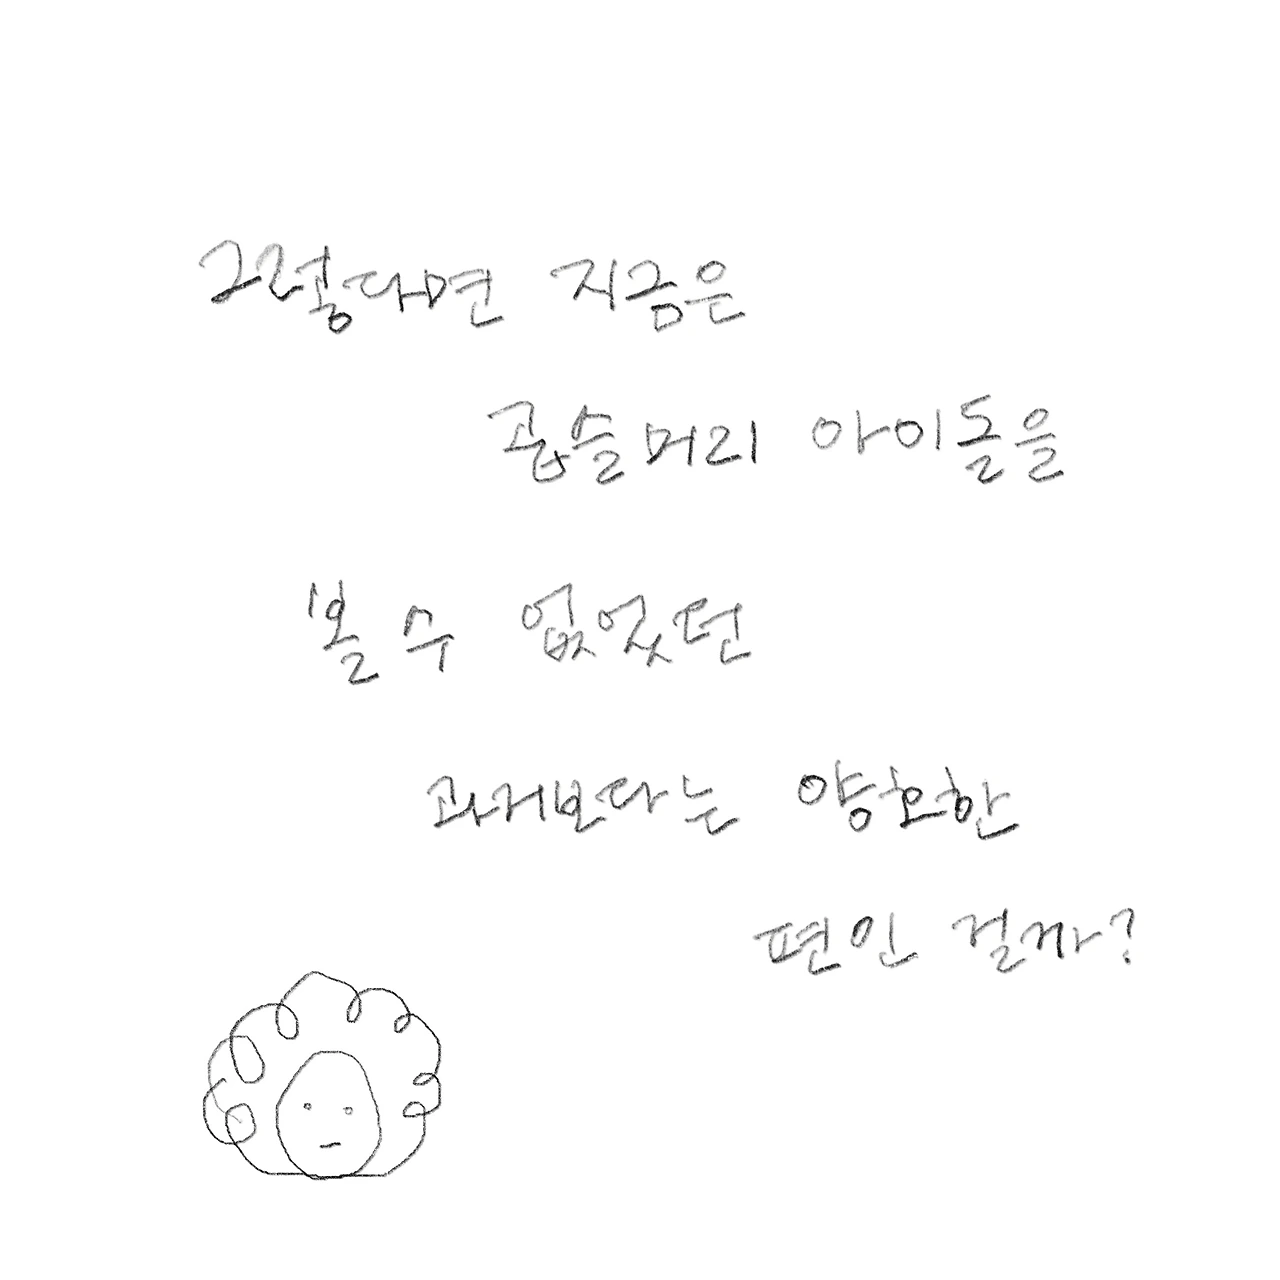 그렇다면 지금은
곱슬머리 아이돌을
볼 수 없었던
과거보다는 양호한
편인 걸까?